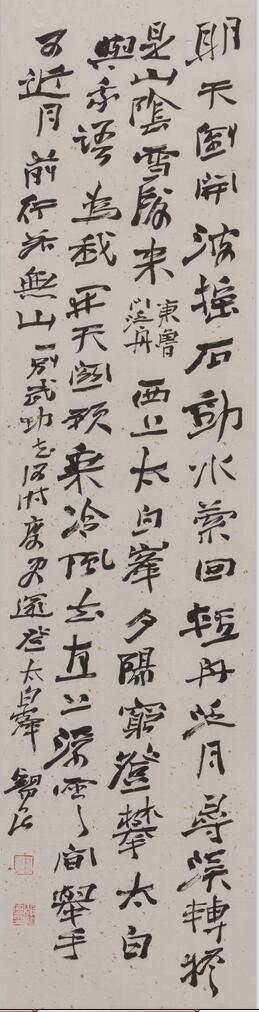 明天倒開波搖石動水縈回輕舟泛月尋溪轉疑
是山陰雪後來
東魯
門泛舟
西上太白峯夕陽窮登攀太白
與我語為我開天關願乘冷風去直上浮雲間舉手
可近月前行若無山一別武功去何時復更還登太白峯